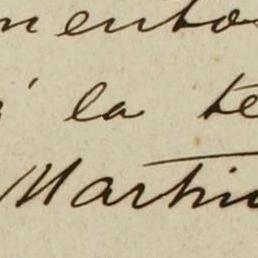 mentos
á la te
Martin